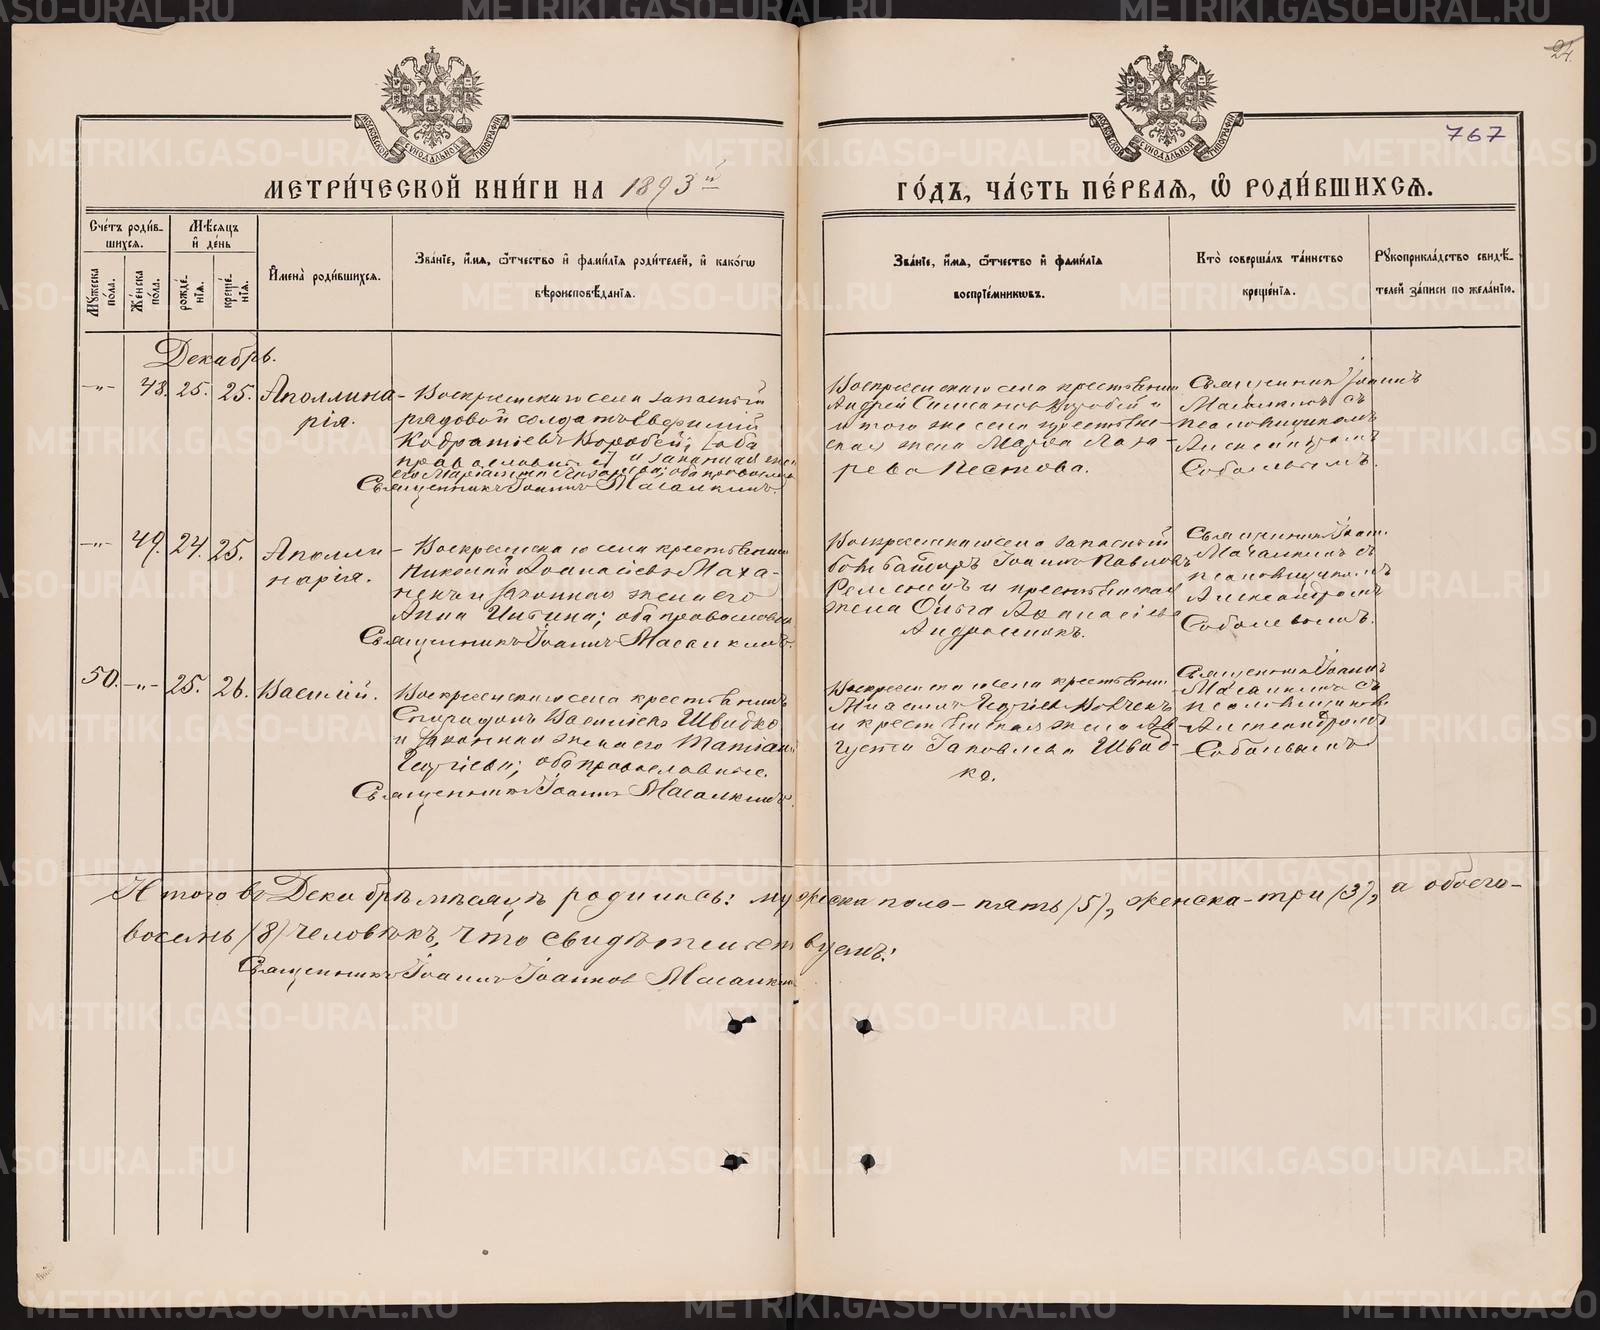 24.
767
МОСКОВСКОЙ СУНОДАЛЬНОЙ ТИПОГРАФІИ
МОСКОВСКОЙ СУНОДАЛЬНОЙ ТИПОГРАФІИ
МЕТРИ́ЧЕСКОЙ КНИ́ГИ НА 1893й
ГО́ДЪ, ЧА́СТЬ ПЕ́РВАѦ, Ѡ РОДИ́ВШИХСѦ.
Сче́тъ роди́в-
шихся.
Мѣ́сяцъ
и де́нь
Му́жеска по́ла.
Же́нска по́ла.
рожде́-
нія.
креще́-
нія.
Имена̀ роди́вшихся.
Зва́нїе, и́мя, ѻ́тчество и фами́лїя роди́телей, и како́гѡ
вѣроисповѣ́данїя.
Зва́нїе, и́мя, ѻ́тчество и фами́лїя
воспрїе́мниковъ.
Кто̀ соверша́лъ та́инство
креще́нїя.
Рꙋкоприкла́дство свидѣ́-
телей за́писи по жела́нїю.
Декабрь.
-„- 48. 25. 25. Аполлина-
рія.
Воскресенскаго села запасный
рядовой солдатъ
Кодратіевъ Коробей; [оба
православн и законная жена
его Маріамна Назарева; оба православн
Священникъ Іоаннъ Масалкинъ.
Воскресенскаго села крестьянинъ
Андрей Коробей и
и того же села крестьян-
ская жена Марѳа Лаза-
рева Песткова.
Священникъ Іоаннъ
Масалкинъ съ
псаломщикомъ
Александромъ
Соболевымъ.
-„- 49. 24. 25. Аполли-
нарія.
Воскресенскаго села крестьянинъ
Николай Аѳанасіевъ Маха-
и законная жена его
Анна; оба православные
Священникъ Іоаннъ Масалкинъ.
Воскресенскаго села запасный
бомбардиръ Іоаннъ Павловъ
и крестьянская
жена Ольга Аѳанасіева
Священникъ Іоаннъ
Масалкинъ съ
псаломщикомъ
Александромъ
Соболевымъ.
50. -„- 25. 26. Василій.
Воскресенскаго села крестьянинъ
Спиридонъ Васильевъ Швидко
и законная жена его
Георгіева; оба православные.
Священникъ Іоаннъ Масалкинъ.
Воскресенскаго села крестьянинъ
Георгіевъ
и крестьянская жена Ав-
густа Іаковлева Швид-
ко.
Священникъ Іоаннъ
Масалкинъ съ
псаломщикомъ
Александромъ
Соболевымъ
Итого въ Декабрѣ мѣсяцѣ родилось: мужеска пола-пять (5), женска-три (3), а обоего-
восемь (8) человѣкъ, что свидѣтельствуемъ:
Священникъ Іоаннъ Іоанновъ Масалкинъ
METRIKI.GASO-URAL.RU